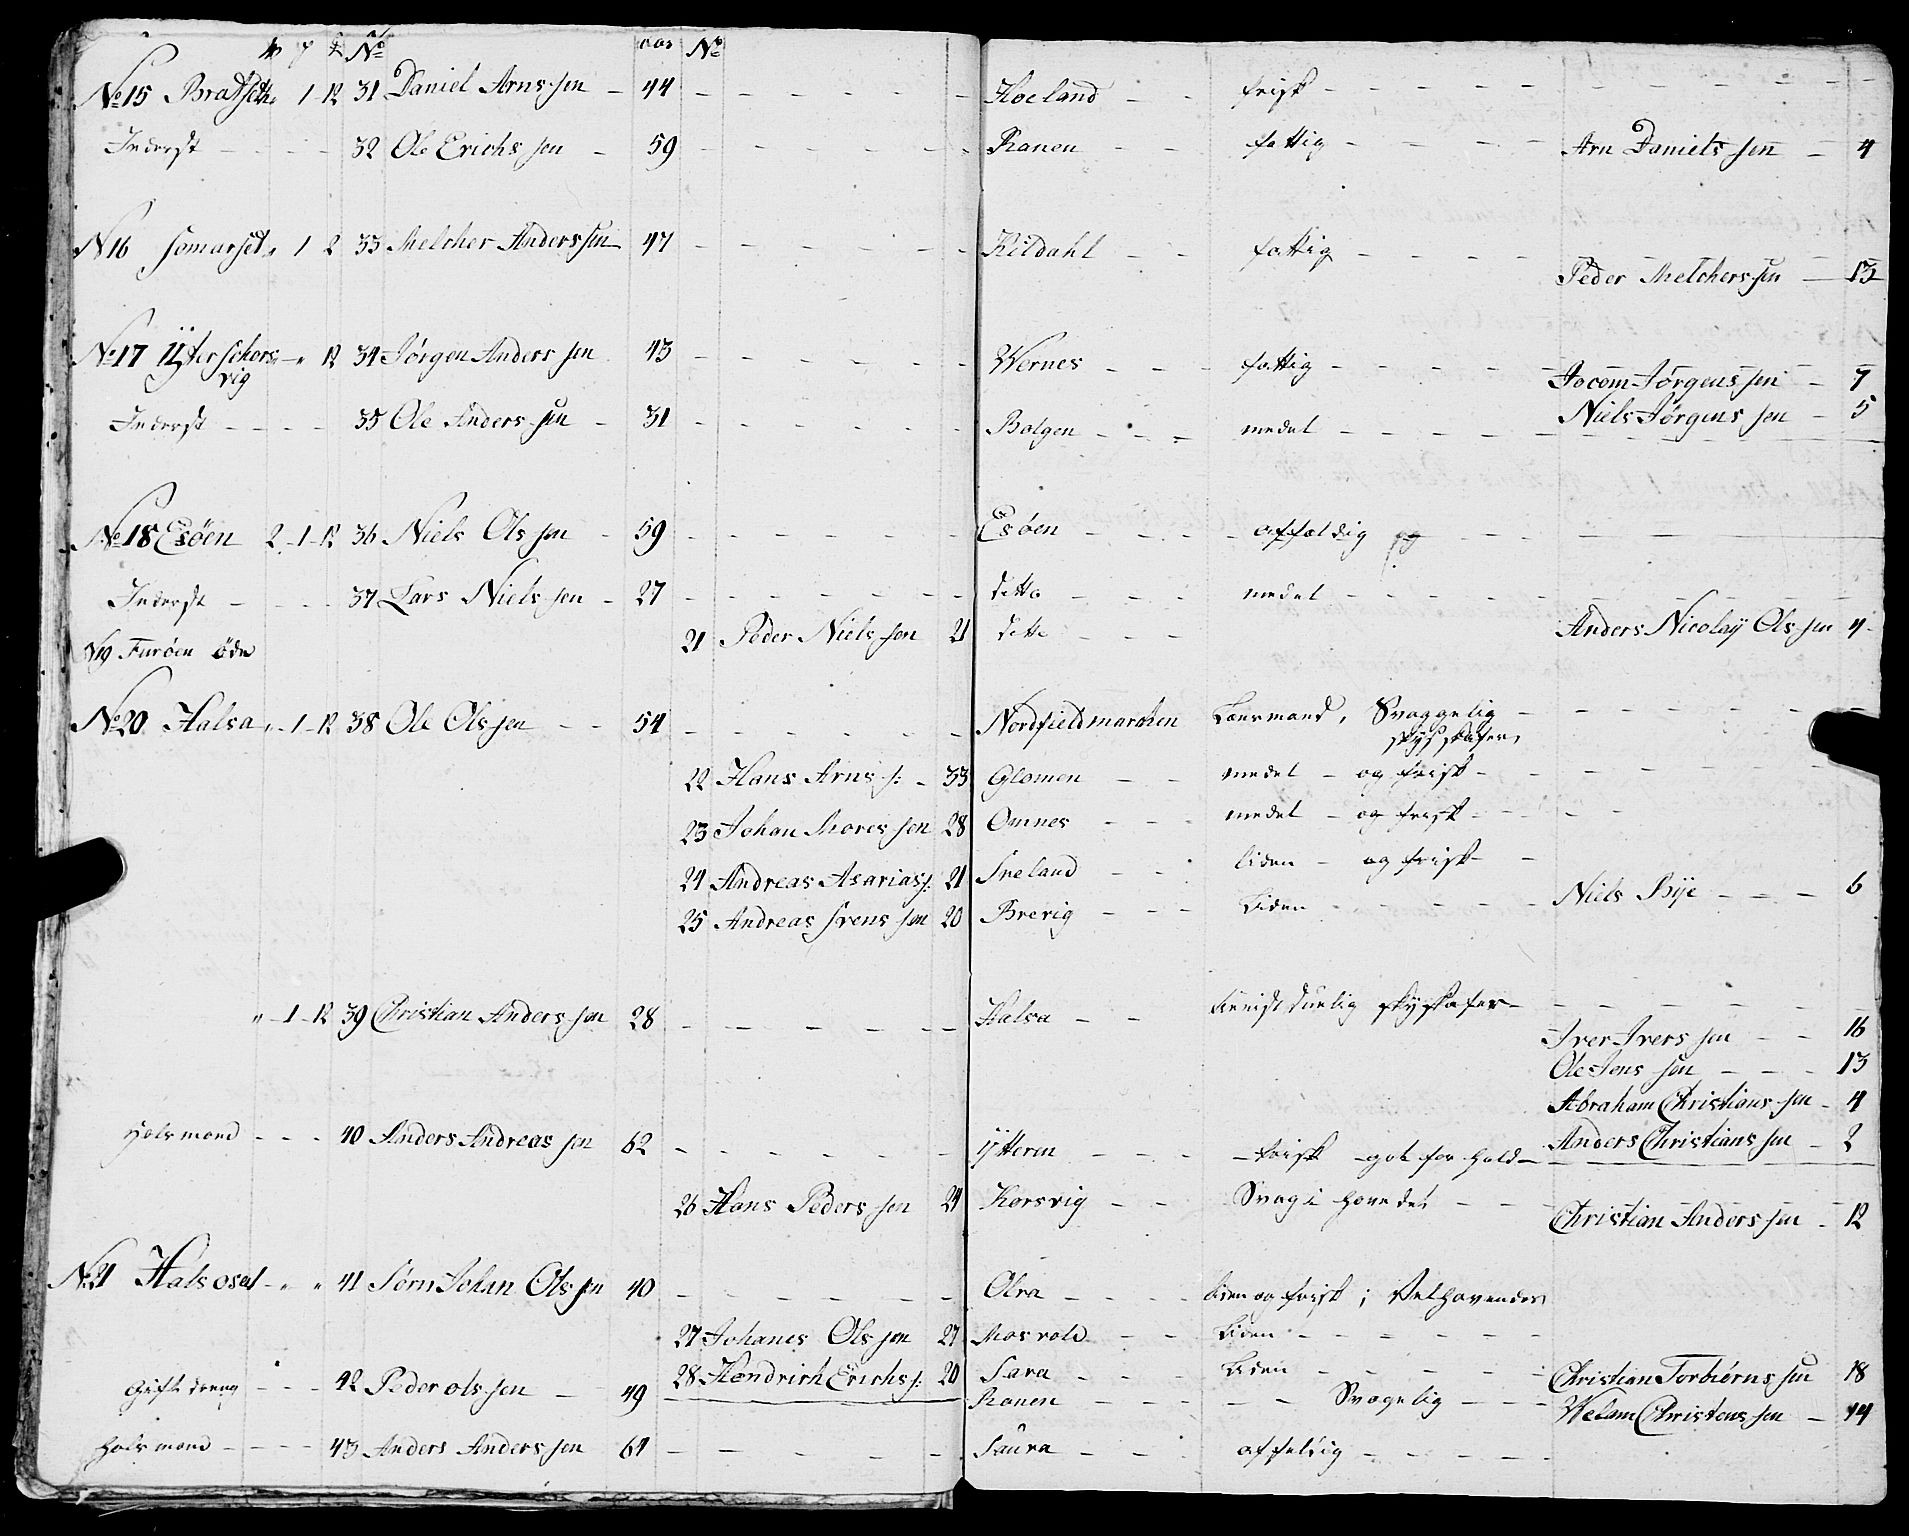 No aar No
No 15 Bratset 1 - 12 31 Daniel Arns sen - 44 - Hoeland - frisk
Inderst - 32 Ole Erichs sen - 59 - Ranen - fattig - Arn Daniels sen - 4
N 16 Somarset " 1 2 33 Melcher Anders sen 47 - Kildahl - fattig
Peder Melchers sen - 13
No 17 Ÿter schors - " 12 34 Jørgen Anders sen 43 - Wernes - fattig
vig
Jocom Jørgens sen - 7
Inderst - 35 Ole Anders sen - 31 - Bolgen - medel - Niels Jørgens sen - 5
No 18 Esöen 2 - 1 - 12 36 Niels Ols sen - 59 - Esöen - affældig
Inderst - 37 Lars Niels sen - 27 - ditto - medel
21 Peder Niels sen 21 ditto - Anders Nicolaÿ Ols sen 4
N 19 Furöen öde
No 20 Halsa " - 1 - 12 38 Ole Ols sen - 54 - Nordfieldmarchen Lænsmand, Svaggelig
skÿsskafer
22 Hans Arns s: - 33 Glomen - medel - og frisk
23 Johan Mores sen 28 Omnes - medel - og frisk
24 Andreas Asarias s: 21 Sveland - liden - og frisk
25 Andreas Svens sen 20 Brevig - Liden - Niels Bÿe - 6
" - 1 - 12 39 Christian Anders sen 28 - Halsa - duelig skÿskafer
Iver Ivers sen - 16
Ole Jens sen - 13
Abraham Christians sen - 4
Huusmand - 40 Anders Andreas sen 62 - ÿtteren - frisk - Anders Christians sen - 2
26 Hans Peders sen 24 Korsvig - Svag i hovedet - Christian Anders sen - 12
No 21 Halsosal - " " 41 Sørn Johan Ols sen 40 - Olva - liden og frisk ; Velhavendes
27 Johanes Ols sen 27 Mosvold - Liden
28 Hendrich Erichs s: 20 Sava - Liden - Christian Torbiörns sen 18
Gift dreng - 42 Peder ols sen - 49 - Ranen - Svagelig - Welam Christens sen - 14
Huusmand - 43 Anders Anders sen 61 - Saura - affeldig